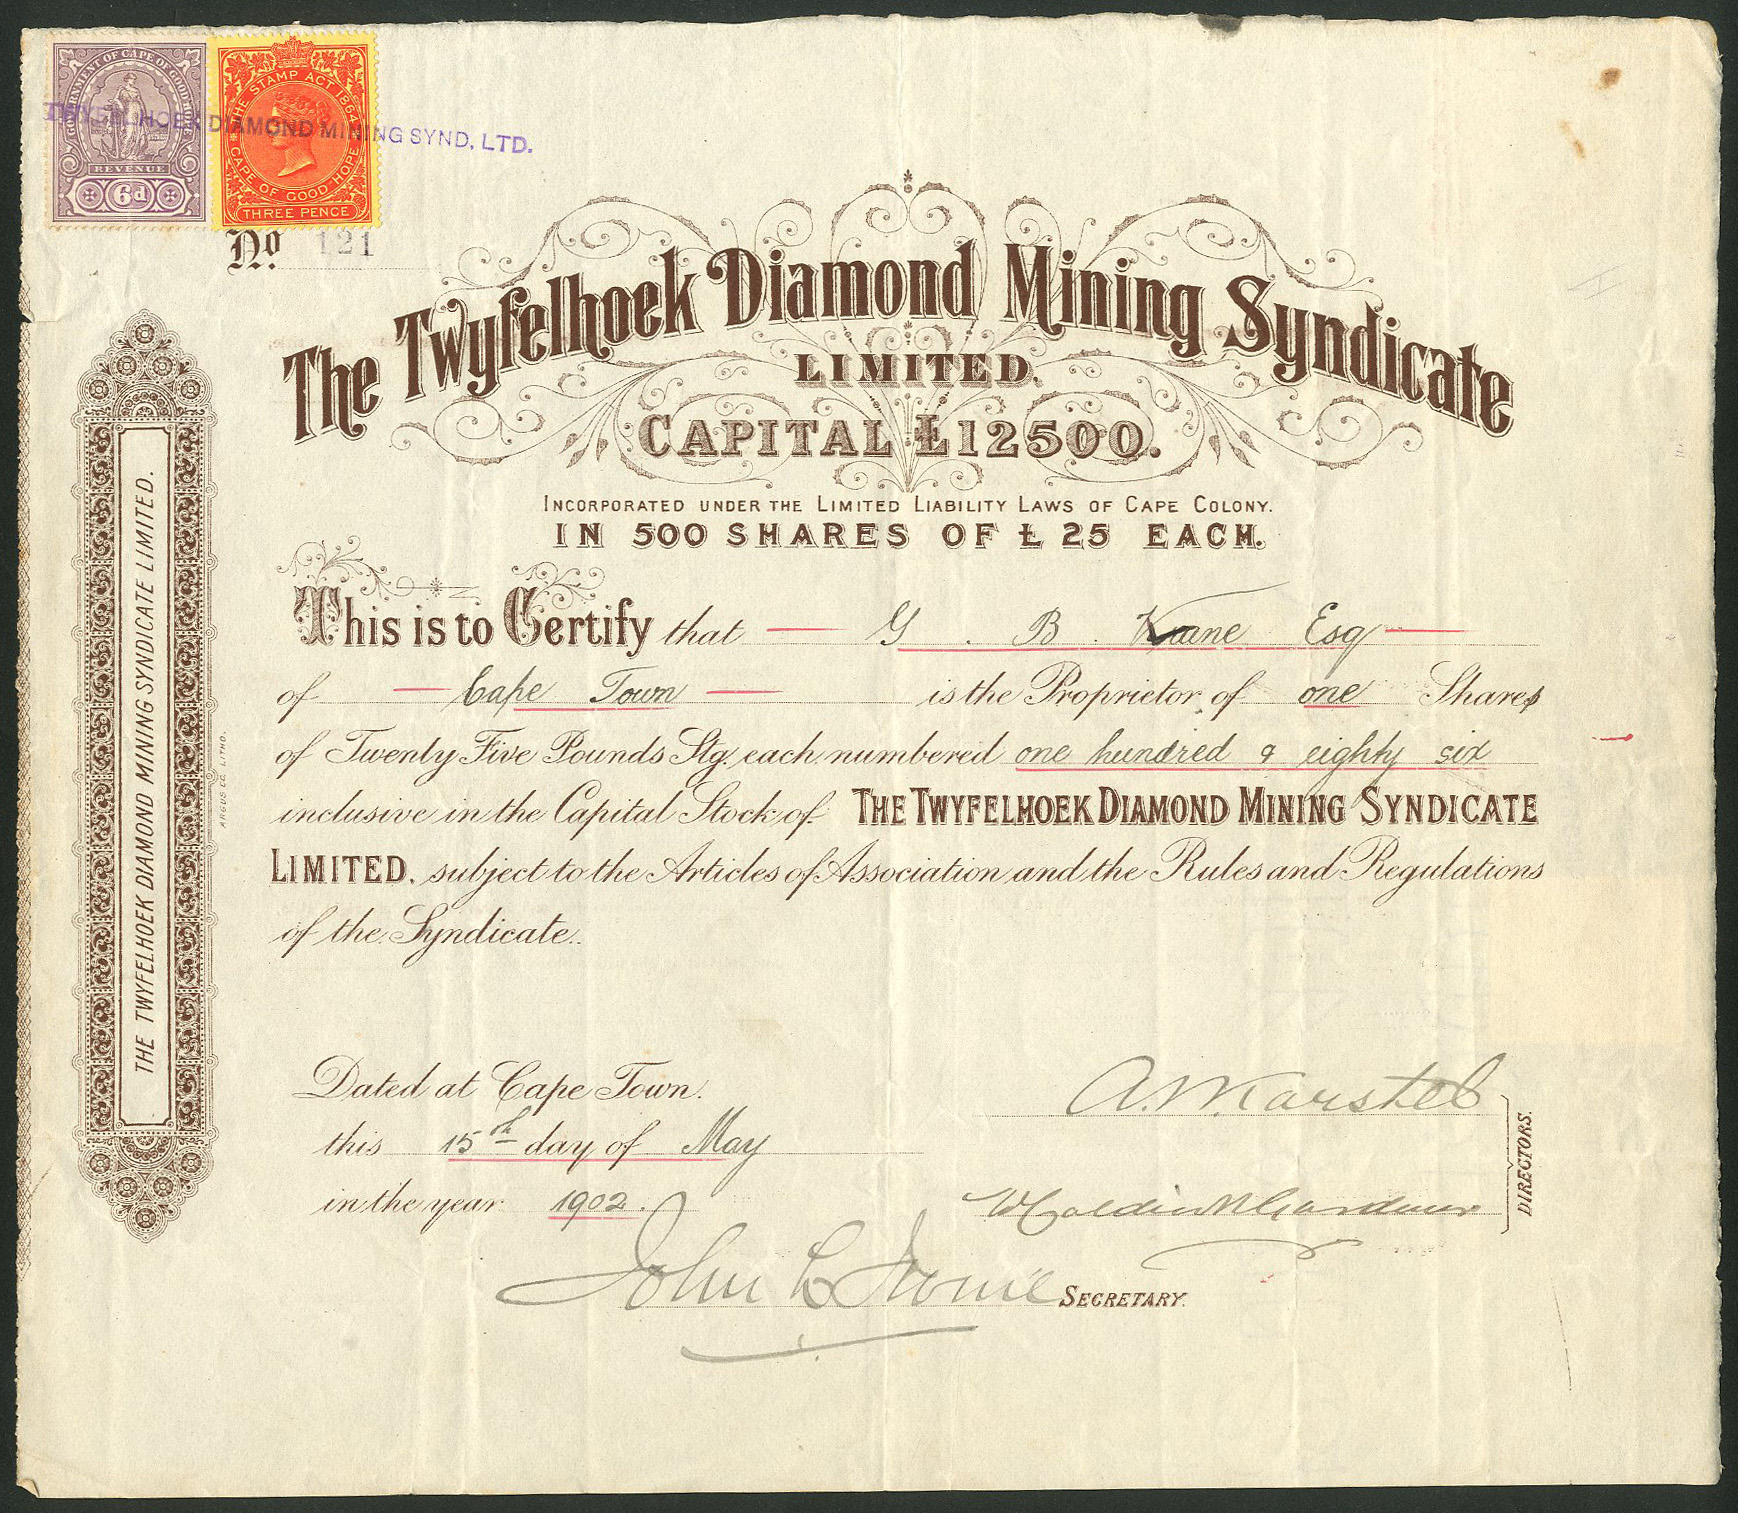 GOVERNMENT OF CAPE OF GOOD HOPE
REVENUE
6d
THE STAMP ACT 1864
CAPE OF GOOD HOPE
THREE PENCE
TWYFELHOEK DIAMOND MINING SYND, LTD.
No. 121
The Twyfelhoek Diamond Mining Syndicate
LIMITED.
CAPITAL £12500.
INCORPORATED UNDER THE LIMITED LIABILITY LAWS OF CAPE COLONY.
IN 500 SHARES OF £25 EACH.
This is to Certify that G. B. Keane Esq
of Cape Town is the Proprietor of one Shares
of Twenty Five Pounds Stg. each numbered one hundred & eighty six
inclusive in the Capital Stock of THE TWYFELHOEK DIAMOND MINING SYNDICATE
LIMITED. subject to the Articles of Association and the Rules and Regulations
of the Syndicate.
Dated at Cape Town.
this 15th day of May
in the year 1902.
DIRECTORS.
John
SECRETARY.
THE TWYFELHOEK DIAMOND MINING SYNDICATE LIMITED.
ARGUS CO. LITHO.